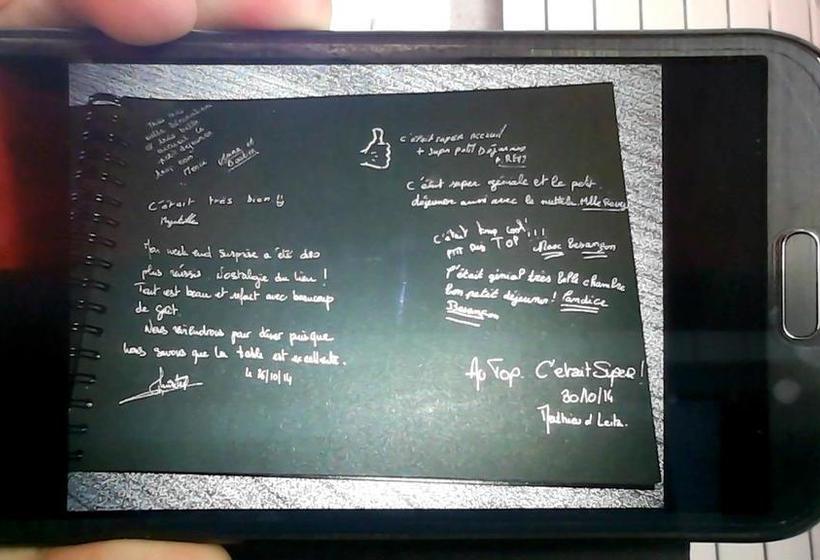 Très très
belle décoration
et très belle
accueil le
petit déjeuner
très bon
Merci
C'était très bien !!
Myrtille
Mon week end surprise a été des
plus réussis Nostalgie du lieu !
Tout est beau et refait avec beaucoup
de goût.
Nous reviendrons pour dîner puisque
nous savons que la table est excellente.
le 26/10/14
c'était super accueil
+ super petit Déjeuner
c'était super géniale et le petit
déjeuner aussi avec le nutella. Mlle
c'était trop cool !!!
ptit dèj TOP Marc Besançon
C'était génial très belle chambre
bon petit déjeuner ! Candice
Besançon
Au Top. C'était Super !
30/10/14
Mathieu et Leila.